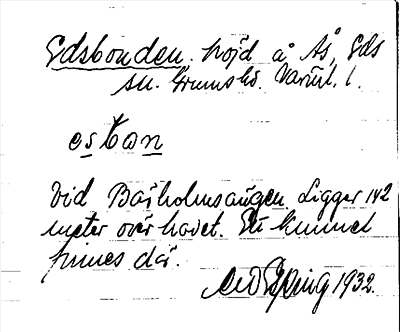 Edsbonden. höjd å Ås, Eds
sn. Grums hd. Värml. l.
estan
Vid Barholmsängen. Ligger 142
meter över havet. Ett kummel
finnes där.
1932.